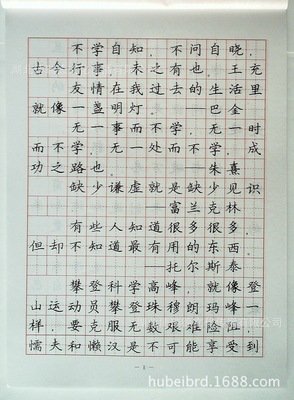 不学自知，不问自晓，
古今行事，未之有也。 王充
友情在我过去的生活里
就像一盏明灯。——巴金
无一事而不学，无一时
而不学，无一处而不学，成
功之路也。——朱熹
缺少谦虚就是缺少见识
——富兰克林
有些人知道很多很多，
但却不知道最有用的东西。
——托尔斯泰
攀登科学高峰，就像登
山运动员攀登珠穆朗玛峰一
样，要克服无数艰难险阻，
懦夫和懒汉是不可能享受到
- 1 -
hubeibrd.1688.com